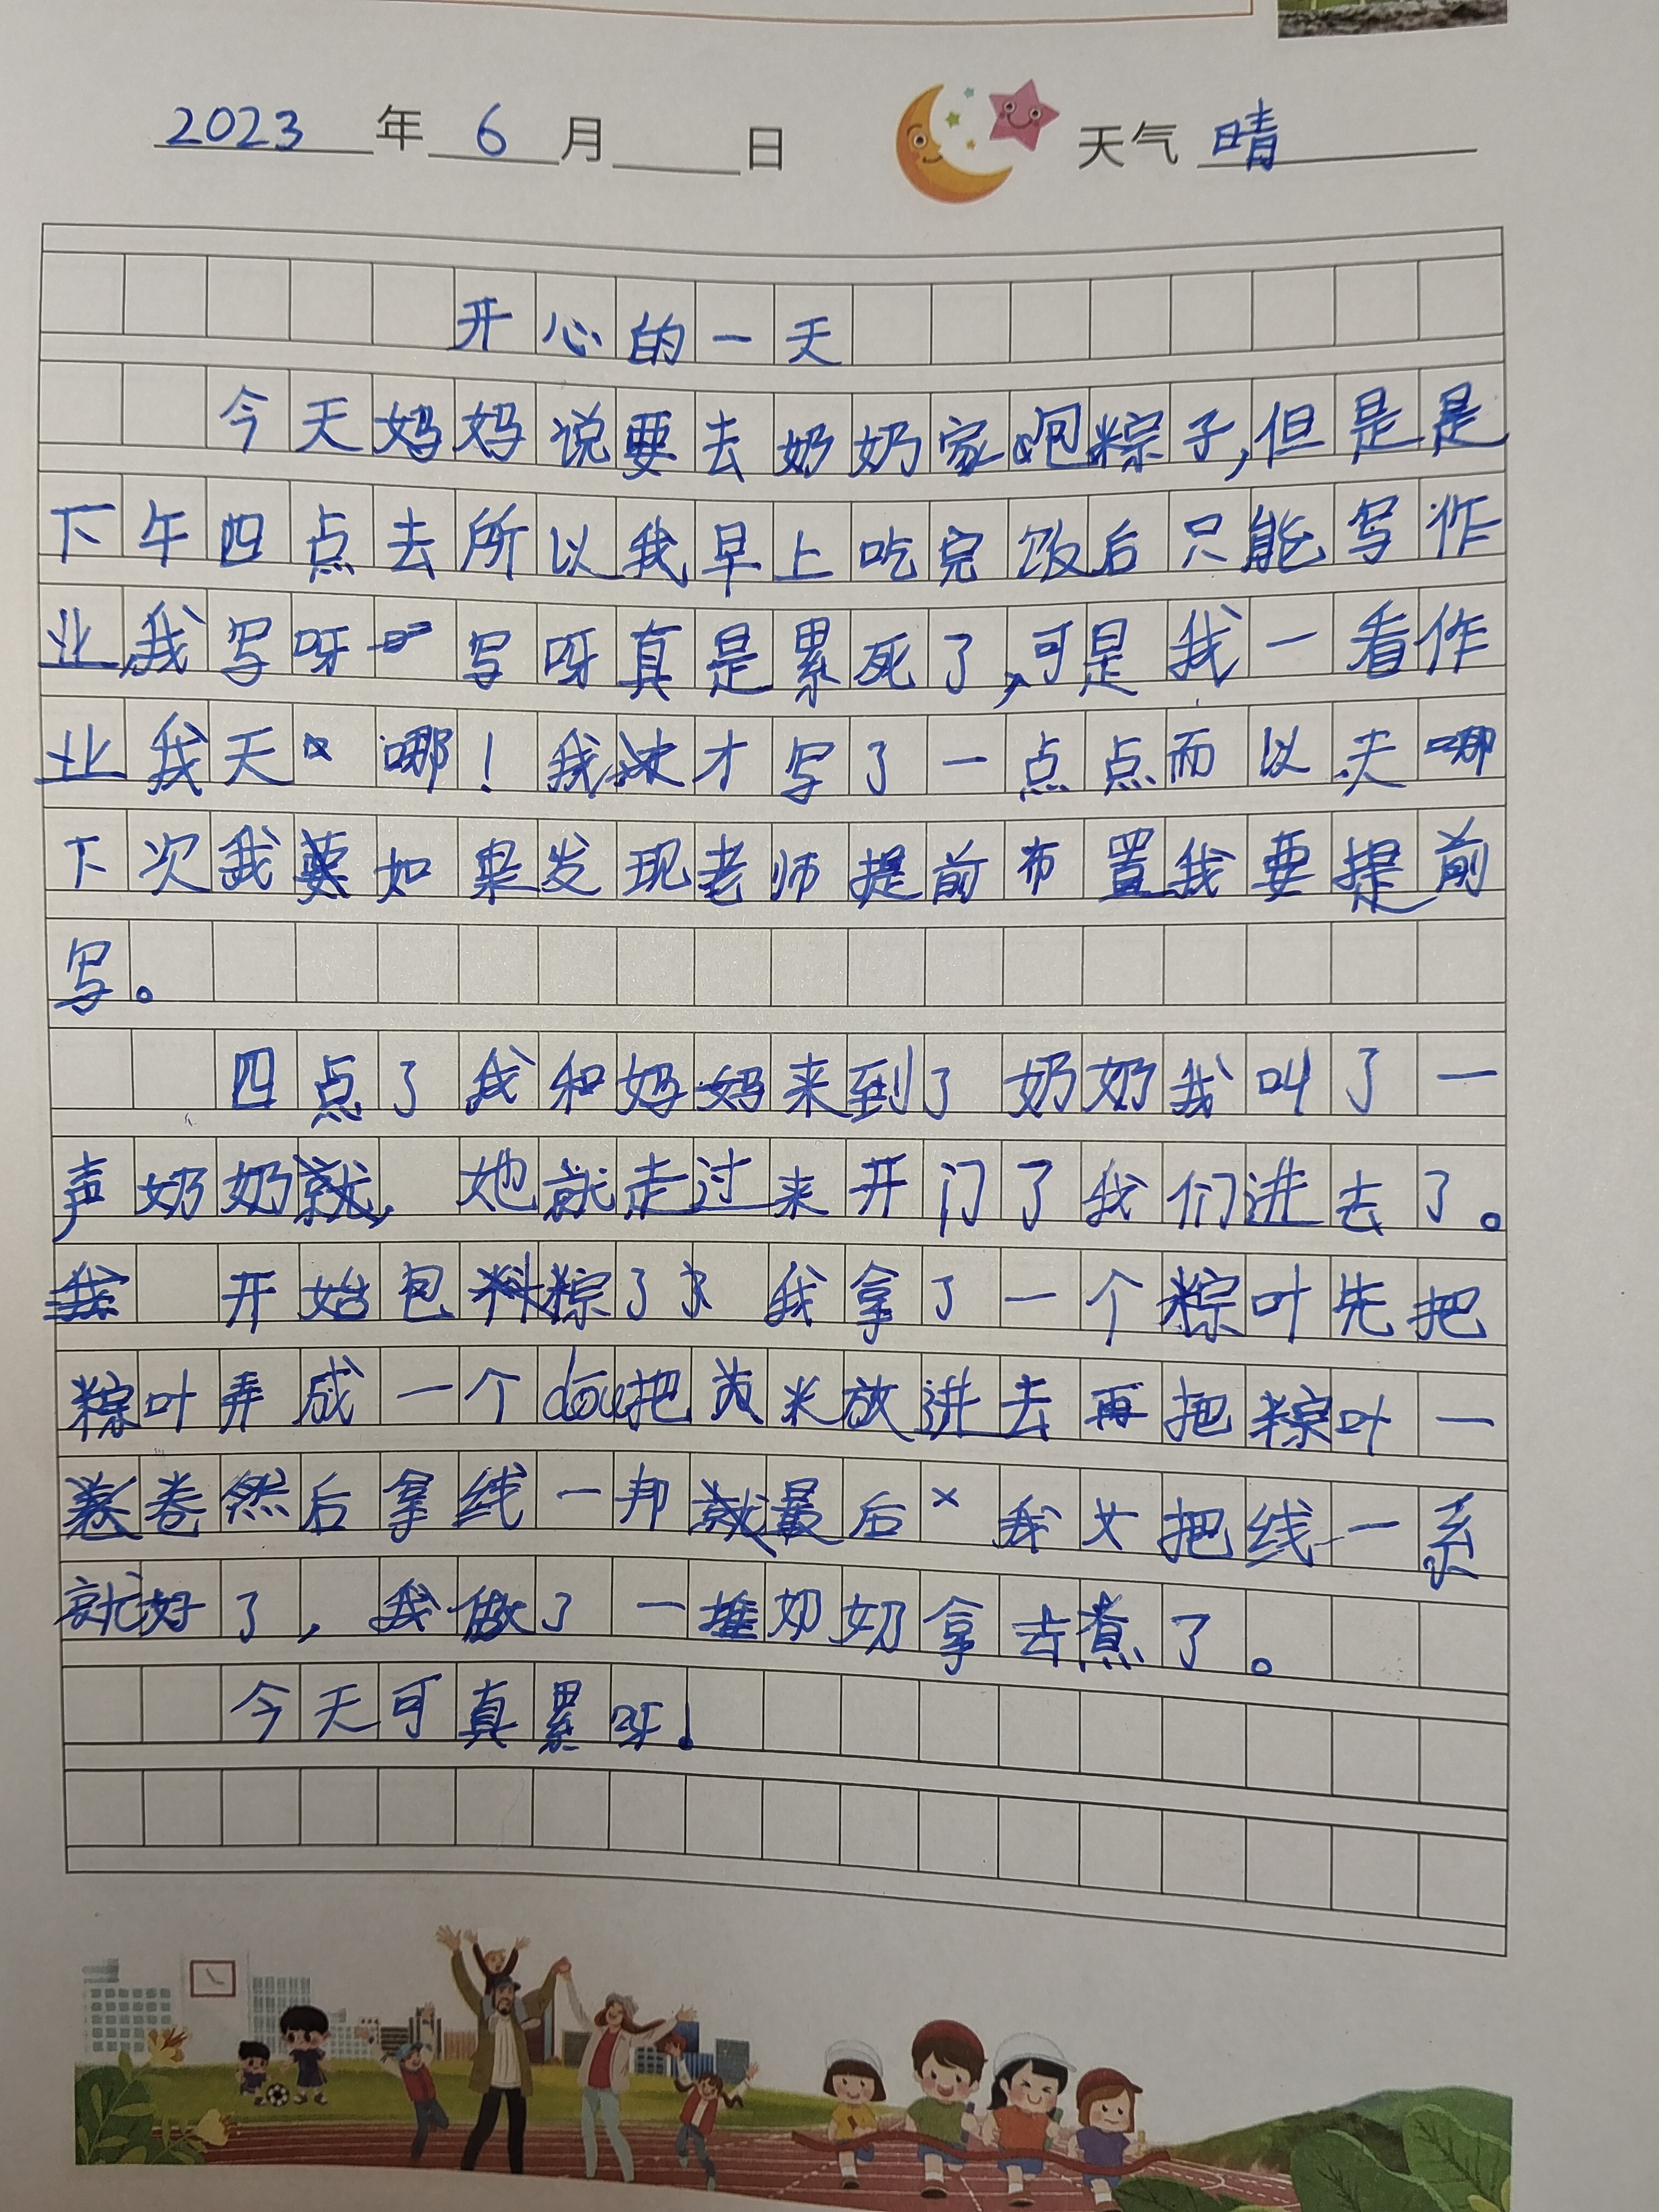 2023年6月 日 天气 晴
开心的一天
今天妈妈说要去奶奶家包粽子,但是是
下午四点去所以我早上吃完饭后只能写作
业,我写呀写呀真是累死了,可是我一看作
业我天哪!我才写了一点点而以天哪
下次我如果发现老师提前布置我要提前
写。
四点了我和妈妈来到了奶奶我叫了一
声奶奶,她就走过来开门了我们进去了。
开始包粽了我拿了一个粽叶先把
粽叶弄成一个dou把米放进去再把粽叶一
卷然后拿线一邦最后我把线一系
就好了,我做了一堆奶奶拿去煮了。
今天可真累呀!